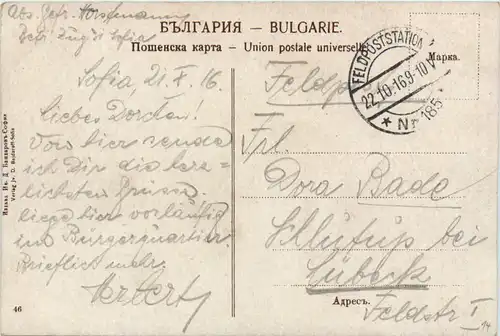 Abs. Gefr. Horstmann
Betr. Zug Sofia
БЪЛГАРИЯ – BULGARIE.
Пощенска карта – Union postale universelle.
Марка.
FELDPOSTSTATION
22.10.16 9-10 V
* Nr 185
Feldpost
Sofia, 21. X. 16
Liebes Dorchen!
Von hier sende
ich Dir die herz-
lichsten Grüsse.
liege hier vorläufig
im Bürgerquartier.
Brieflich mehr.
Herbert
Frl.
Dora Bade
Schlutup bei
Lübeck
Feldstr I
14
Адресъ.
46
Издава Ив. Д. Божиновъ-София
Verlag J. D.